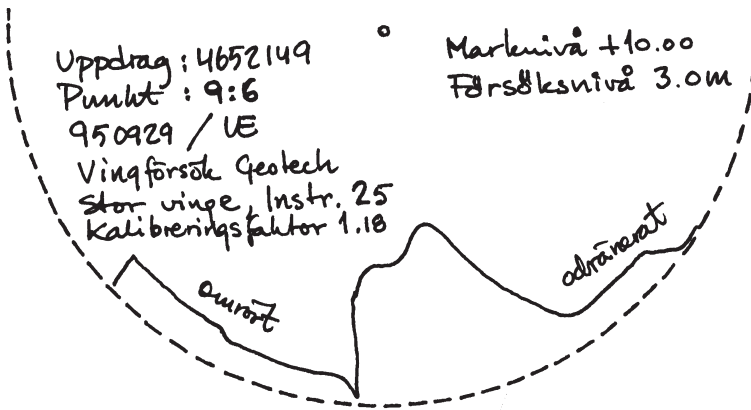 Uppdrag : 4652149
Punkt : 9:6
950929 / UE
Vingförsök Geotech
Stor vinge, Instr. 25
Kalibreringsfaktor 1.18
Marknivå +10.00
Försöksnivå 3.0m
omrört
odränerat